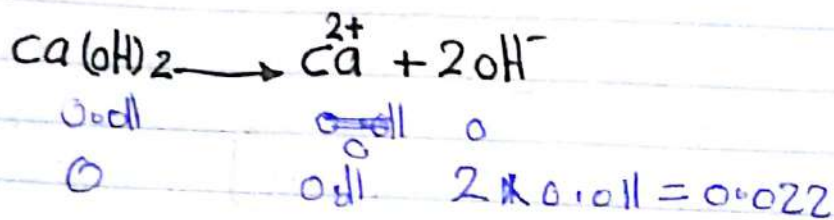 Ca(OH)2 → Ca2+ + 2OH-
0.011 0 0
0 0.011 2 × 0.011 = 0.022